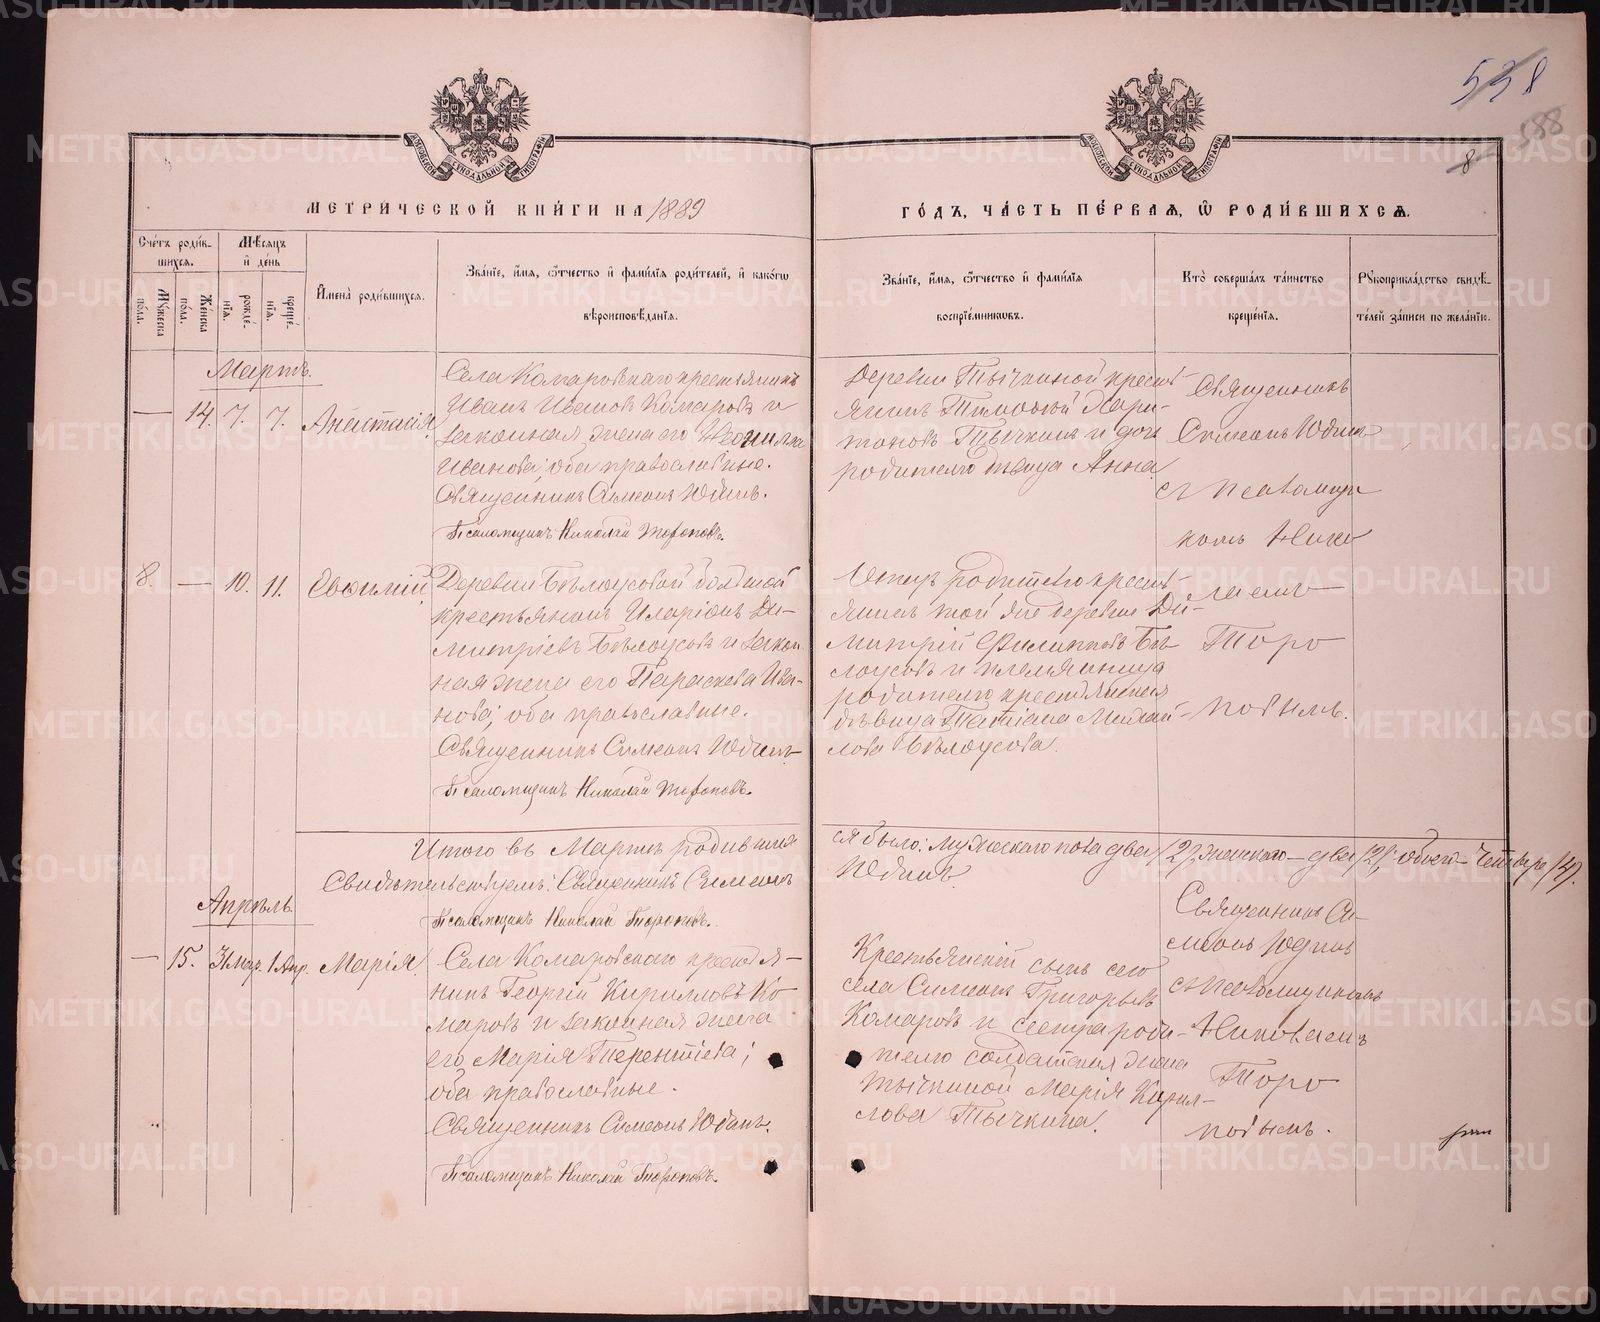 538
588
8
МЕТРИЧЕСКОЙ КНИГИ НА 1889
ГОДЪ, ЧАСТЬ ПЕРВАЯ, Ѿ РОДИВШИХСЯ.
Счетъ родив-
шихся.
Мѣсяцъ
и день
Мужеска
пола.
Женска
пола.
рожде-
нія.
креще-
нія.
Имена родившихся.
Званіе, имя, ѿтчество и фамилія родителей, и какогѡ
вѣроисповѣданія.
Званіе, имя, ѿтчество и фамилія
воспріемниковъ.
Кто совершалъ таинство
крещенія.
Рукоприкладство свидѣ-
телей записи по желанію.
Мартъ.
— 14. 7. 7. Анастасія
Села Комаровскаго крестьянинъ
Иванъ Ивановъ Комаровъ и
законная жена его Неонилла
Иванова; оба православные.
Священникъ Симеонъ Юдинъ.
Псаломщикъ Николай Топоровъ.
Деревни Тычкиной кресть-
янинъ Тимофей Хари-
тоновъ Тычкинъ и дочь
родителю девица Анна
Священникъ
Симеонъ Юдинъ
съ псаломщи
комъ Нико
лаемъ
Торо
повымъ.
8. — 10. 11. Евфимій
Деревни Бѣлоусовой большой
крестьянинъ Иларіонъ Ди-
митріевъ Бѣлоусовъ и закон
ная жена его Параскева Ива-
нова; оба православные.
Священникъ Симеонъ Юдинъ
Псаломщикъ Николай Торопов.
Отецъ родителю кресть-
янинъ той же деревни Ди-
митрій Филипповъ Бѣ
лоусовъ и племянница
родителю крестьянская
дѣвица Татіана Михай-
лова Бѣлоусова.
Итого въ Мартѣ родивших
ся было: мужескаго пола два /2/, женскаго — два /2/; обоего — четверо /4/.
Свидѣтельствуемъ: Священникъ Симеонъ
Юдинъ.
Псаломщикъ Николай Тороповъ.
Апрѣль.
— 15. 31 мар. 1 Апр. Марія.
Села Комаровскаго крестья-
нинъ Георгій Кирилловъ Ко
маровъ и законная жена
его Марія Терентіева;
оба православные.
Священникъ Симеонъ Юдинъ.
Псаломщикъ Николай Тороповъ.
Крестьянскій сынъ сего
села Симеонъ Григорьевъ
Комаровъ и сестра роди-
телю солдатская жена
Тычкиной Марія Кирил-
лова Тычкина.
Священникъ Си
меонъ Юдинъ
съ псаломщикомъ
Николаемъ
Торо
повымъ.